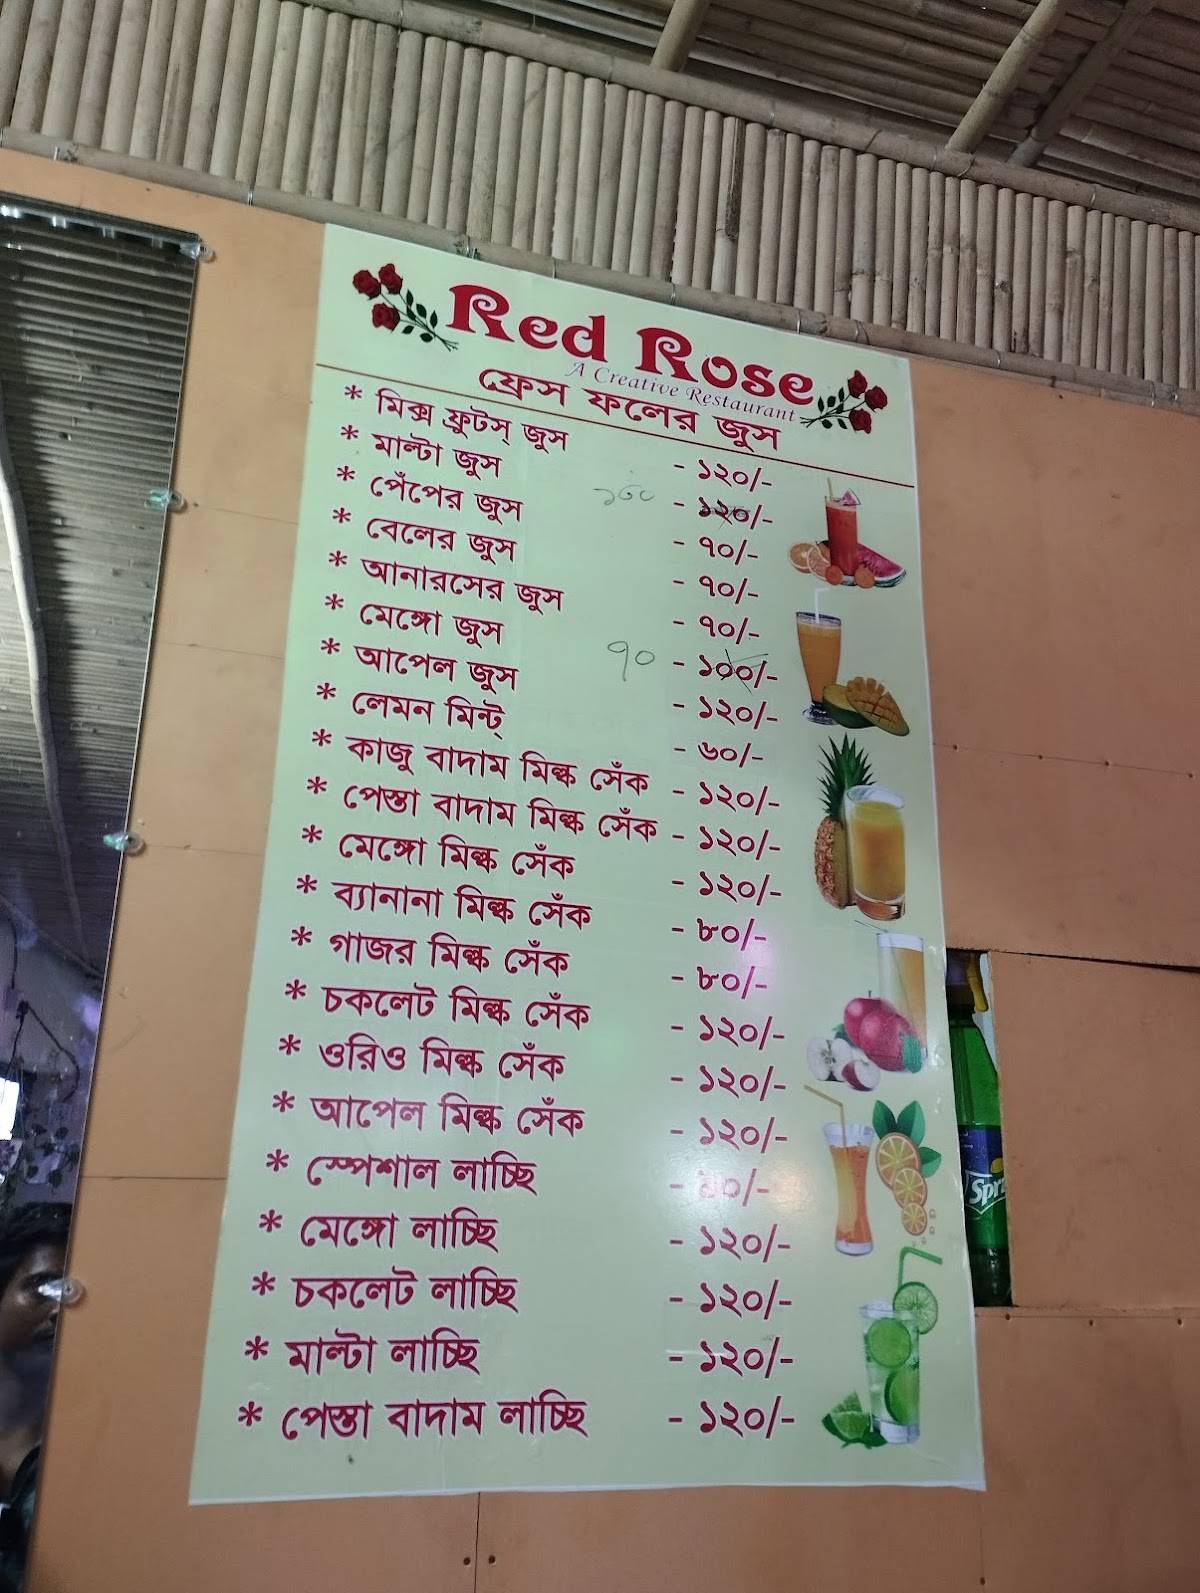 Red Rose
A Creative Restaurant
ফ্রেস ফলের জুস
* মিক্স ফ্রুটস্ জুস - ১২০/-
* মাল্টা জুস - ১২০/-
* পেঁপের জুস - ৭০/-
* বেলের জুস - ৭০/-
* আনারসের জুস - ৭০/-
* মেঙ্গো জুস ৭০ - ১০০/-
* আপেল জুস - ১২০/-
* লেমন মিন্ট্ - ৬০/-
* কাজু বাদাম মিল্ক সেঁক - ১২০/-
* পেস্তা বাদাম মিল্ক সেঁক - ১২০/-
* মেঙ্গো মিল্ক সেঁক - ১২০/-
* ব্যানানা মিল্ক সেঁক - ৮০/-
* গাজর মিল্ক সেঁক - ৮০/-
* চকলেট মিল্ক সেঁক - ১২০/-
* ওরিও মিল্ক সেঁক - ১২০/-
* আপেল মিল্ক সেঁক - ১২০/-
* স্পেশাল লাচ্ছি
* মেঙ্গো লাচ্ছি - ১২০/-
* চকলেট লাচ্ছি - ১২০/-
* মাল্টা লাচ্ছি - ১২০/-
* পেস্তা বাদাম লাচ্ছি - ১২০/-